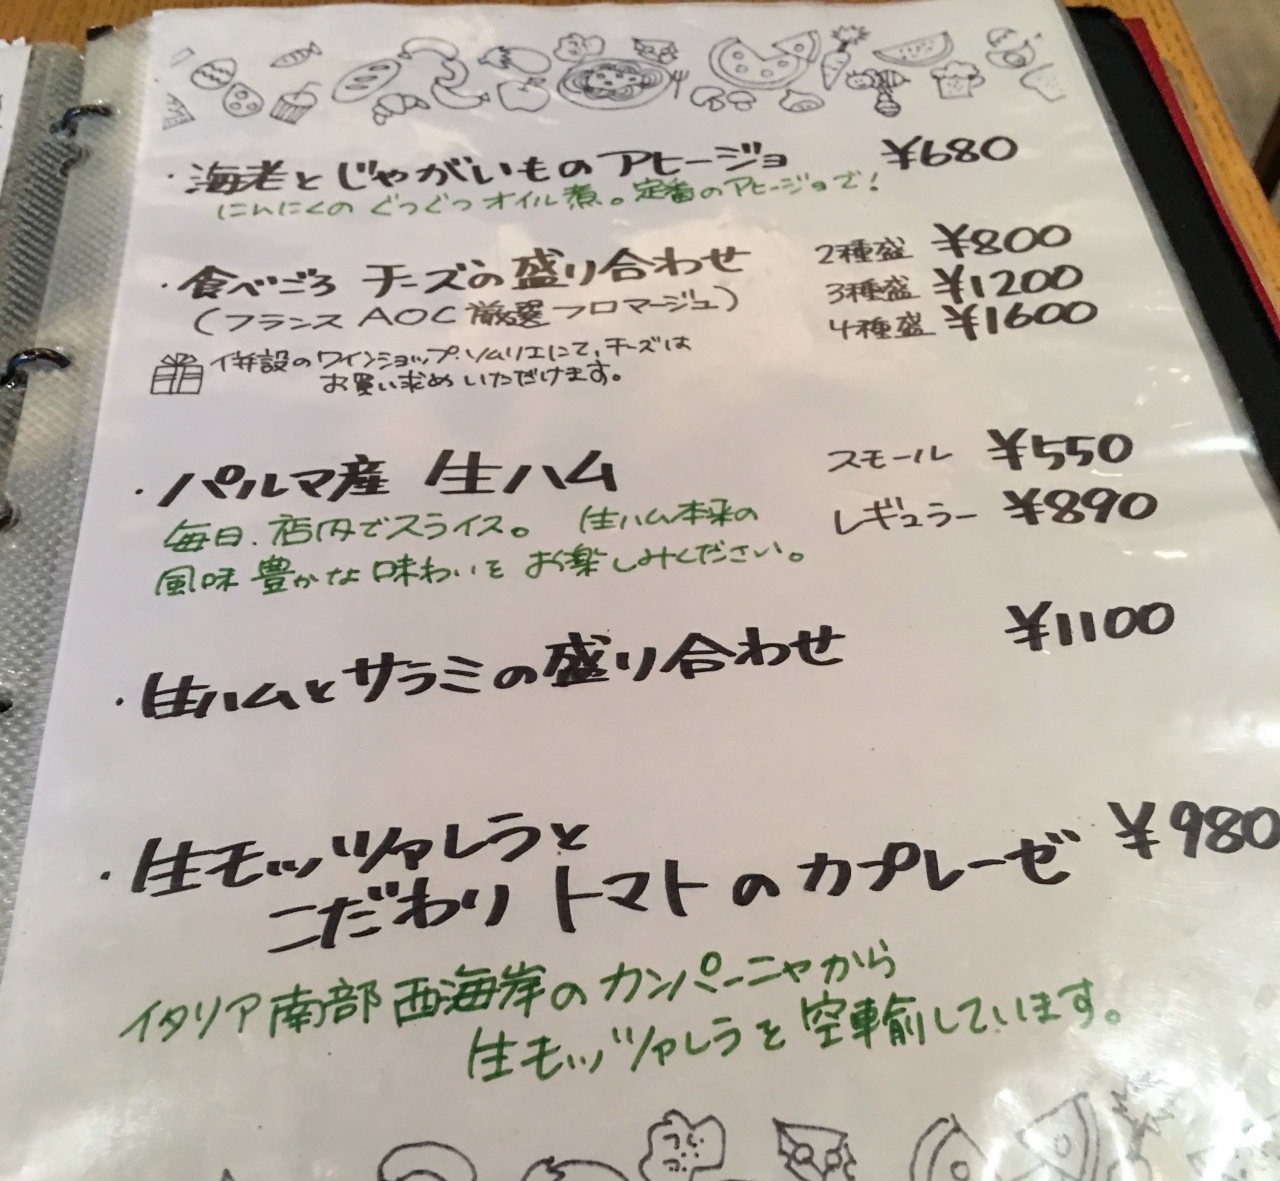 ・海老とじゃがいものアヒージョ ¥680
にんにくの ぐつぐつ オイル煮。定番のアヒージョで！
・食べごろ チーズの盛り合わせ 2種盛 ¥800
(フランス AOC 厳選フロマージュ) 3種盛 ¥1200
4種盛 ¥1600
併設のワインショップ・ソムリエにて、チーズは
お買い求めいただけます。
・パルマ産 生ハム スモール ¥550
レギュラー ¥890
毎日、店内でスライス。 生ハム本来の
風味豊かな味わいを お楽しみください。
・生ハムとサラミの盛り合わせ ¥1100
・生モッツァレラと
こだわり トマトのカプレーゼ ¥980
イタリア南部西海岸のカンパーニャから
生モッツァレラを空輸しています。